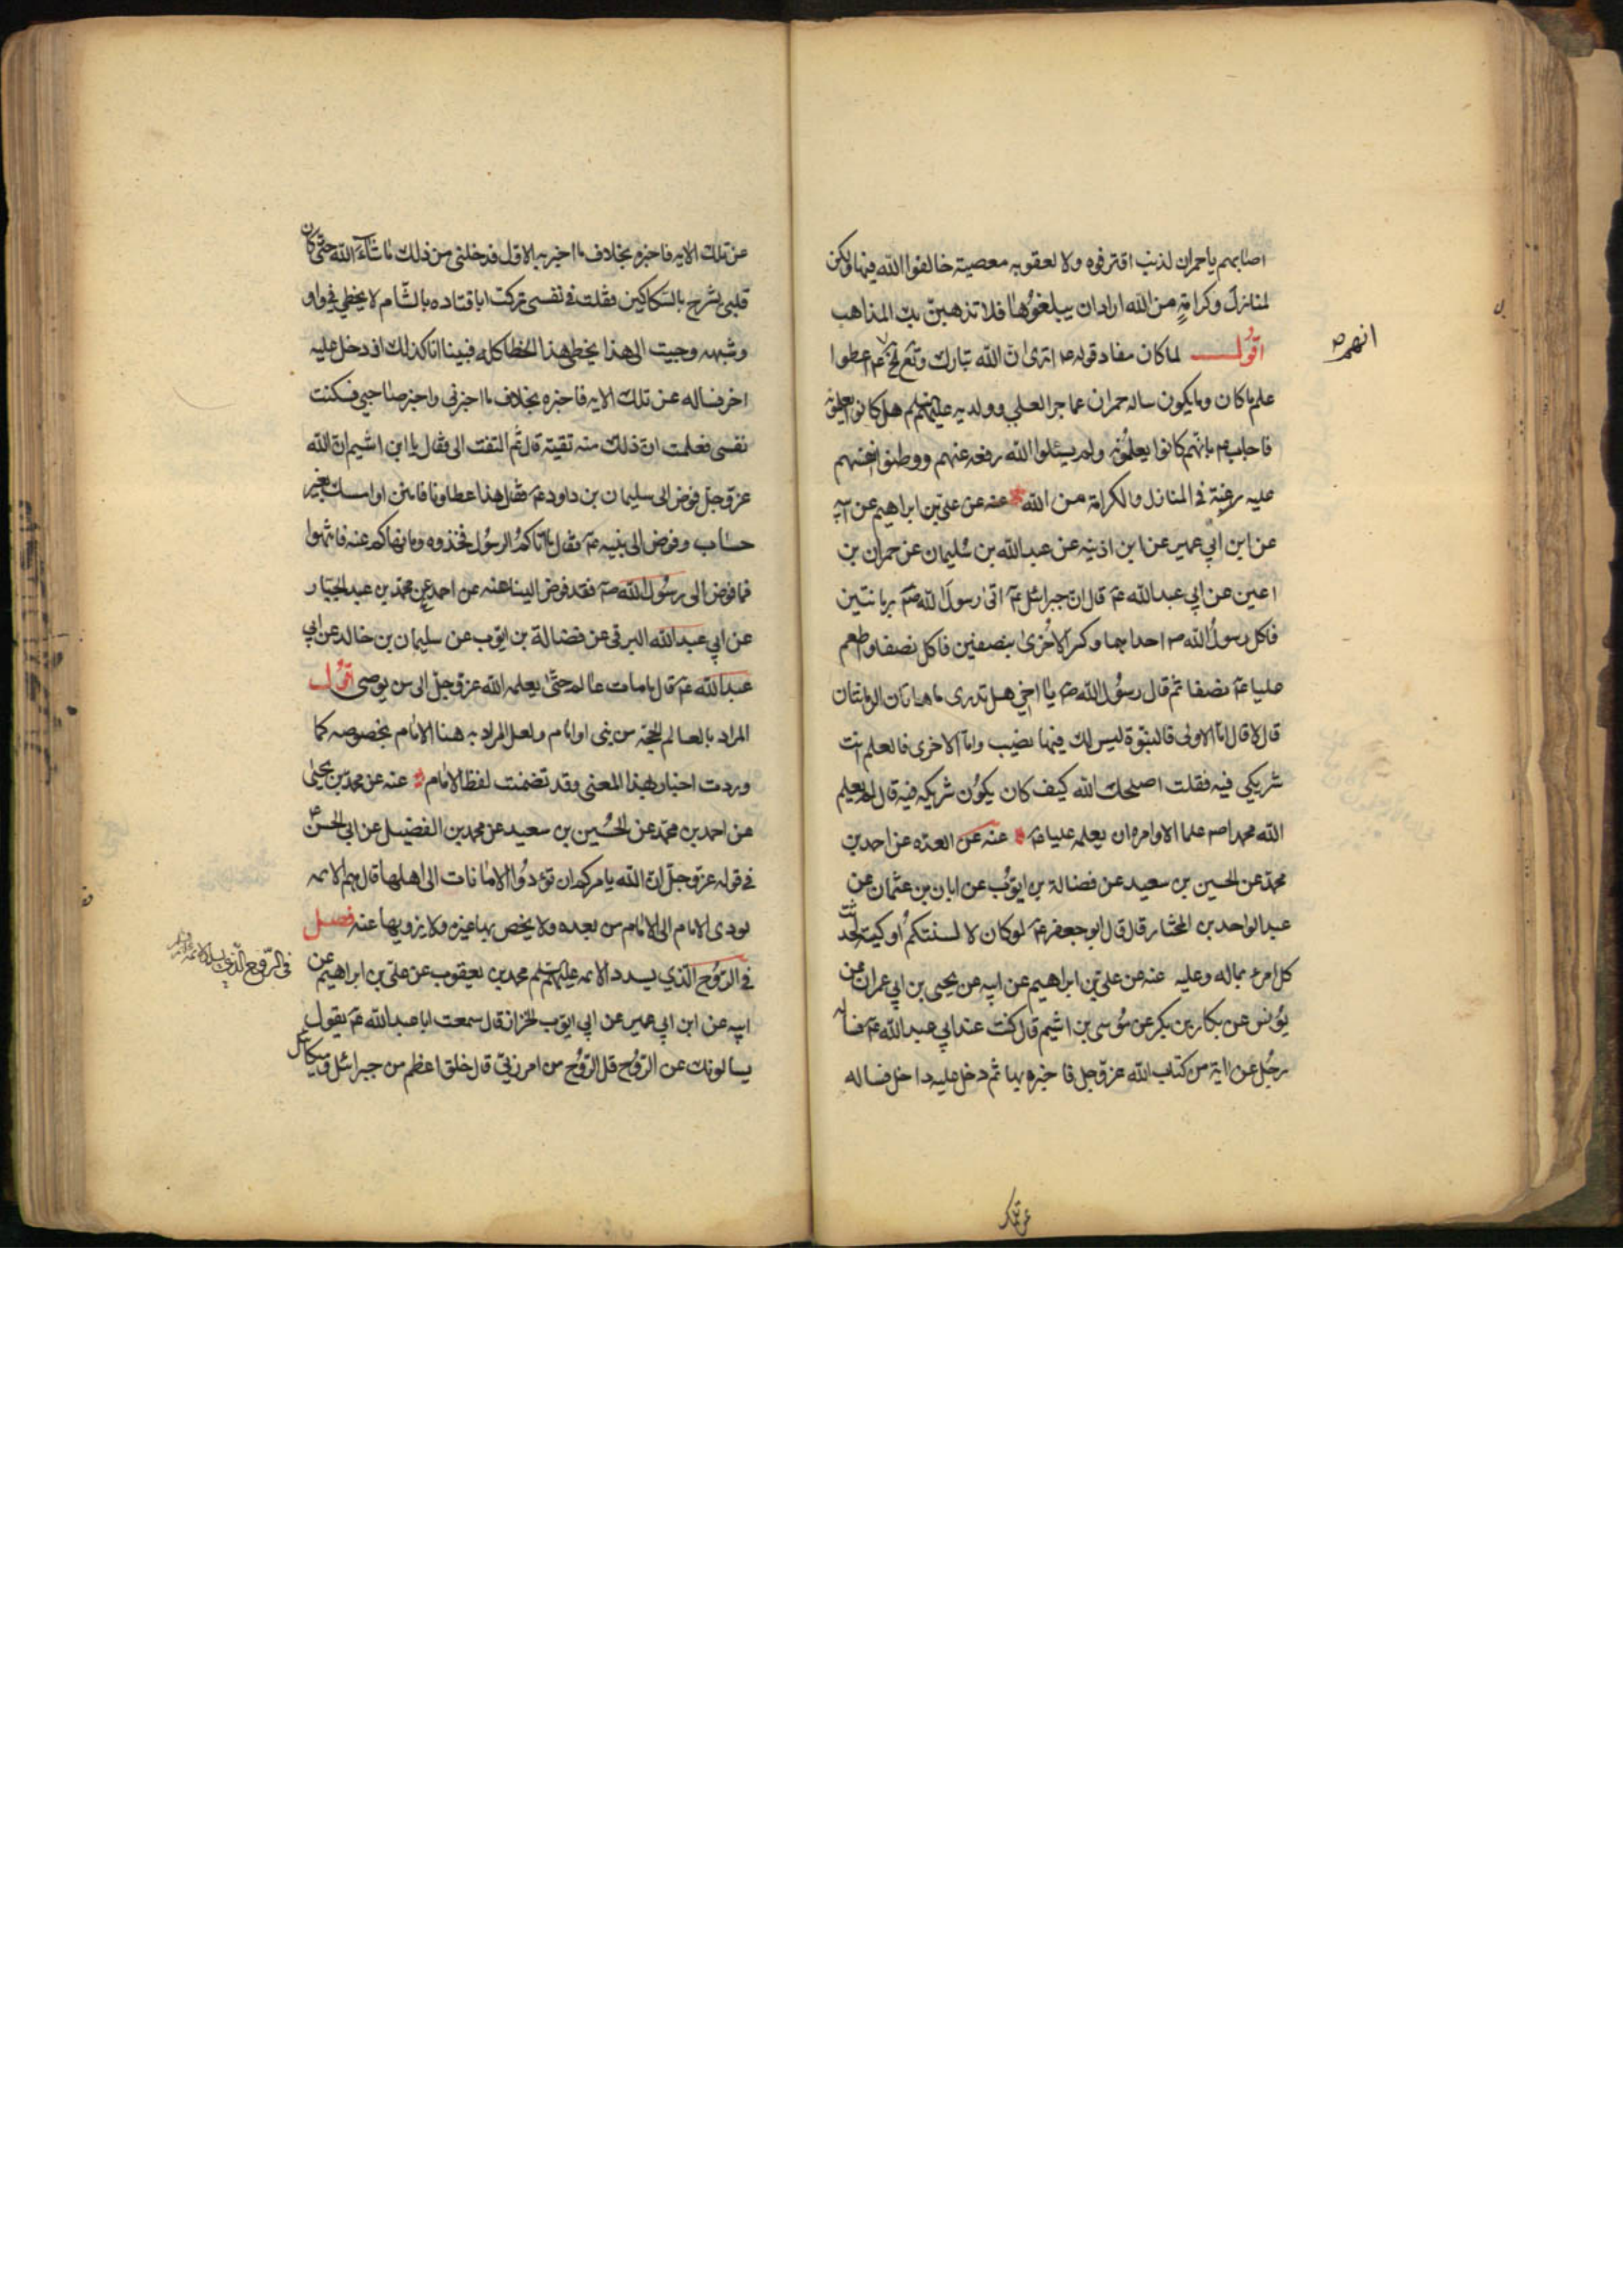 اصابهم ياحمران لذنب اقترفوه ولا لعقوبه معصية خالفوا الله فيها ولكن
لمنازل وكرامة من الله ارادان يبلغوها فلا تذهبن بك المذاهب
اقول لما كان مفاد قوله اترى ان الله تبارك وتع اعطوا
انهم
علم ما كان وما يكون ساله حمران عما جرا لعلي وولديه عليهم هل كانوا يعلمونه
فاجاب بانهم كانوا يعلمونه ولم يسئلوا الله رفعه عنهم ووطنوا انفسهم
عليه رغبة في المنازل والكرامة من الله عنه عن علي بن ابراهيم عن ابيه
عن ابن ابي عمير عن ابن اذينه عن عبدالله بن سليمان عن حمران بن
اعين عن ابي عبدالله عم قال ان جبرائيل عم اتى رسول الله صم برمانتين
فاكل رسول الله ص احداهما وكسر الاخرى بنصفين فاكل نصفا واطعم
عليا عم نصفا ثم قال رسول الله ص يا اخي هل تدرى ما هاتان الرمانتان
قال لا قال اما الاولى فالنبوة ليس لك فيها نصيب واما الاخرى فالعلم انت
شريكي فيه فقلت اصلحك الله كيف كان يكون شريكه فيه قال لم يعلم
الله محمدا ص علما الا وامره ان يعلمه عليا عم عنه عن العده عن احمد بن
محمد عن الحسين بن سعيد عن فضالة بن ايوب عن ابان بن عثمان عن
عبد الواحد بن المختار قال قال ابو جعفر عم لو كان لالسنتكم اوكيه لحدثت
كل امرء بماله وعليه عنه عن علي بن ابراهيم عن ابيه عن يحيى بن ابي عمران عن
يونس عن بكار بن بكر عن موسى بن اشيم قال كنت عند ابي عبد الله عم فساله
رجل عن اية من كتاب الله عز وجل فاخبره بها ثم دخل عليه داخل فساله
عن تلك
عن تلك الايه فاخبره بخلاف ما اخبر به الاول فدخلني من ذلك ما شاء الله حتى كان
قلبي يشرح بالسكاكين فقلت في نفسي تركت ابا قتاده بالشام لا يخطي في واو
وشبهه وجيت الى هذا يخطى هذا الخطا كله فبينا انا كذلك اذ دخل عليه
اخر فساله عن تلك الايه فاخبره بخلاف ما اخبرني واخبر صاحبي فسكنت
نفسي فعلمت ان ذلك منه تقية قال ثم التفت الي فقال يا ابن اشيم ان الله
عز وجل فوض الى سليمان بن داود عم فقال هذا عطاونا فامنن او امسك بغير
حساب وفوض الى نبيه عم فقال ما اتاكم الرسول فخذوه وما نهاكم عنه فانتهوا
فما فوض الى رسول الله صم فقد فوض الينا عنه عن احمد عن محمد بن عبد الجبار
عن ابي عبد الله البرقى عن فضالة بن ايوب عن سليمان بن خالد عن ابي
عبد الله عم قال ما مات عالم حتى يعلمه الله عز وجل الى من يوصى اقول
المراد بالعالم الحجة من نبي او امام ولعل المراد به هنا الامام بخصوصه كما
وردت اخبار بهذا المعنى وقد تضمنت لفظ الامام عنه عن محمد بن يحيى
عن احمد بن محمد عن الحسين بن سعيد عن محمد بن الفضيل عن ابي الحسن
في قوله عز وجل ان الله يامركم ان تؤدوا الامانات الى اهلها قال هم الائمه
يودى الامام الى الامام من بعده ولا يخص بها غيره ولا يزويها عنه فصل
في الروح الذي يسدد الائمه عليهم محمد بن يعقوب عن علي بن ابراهيم عن
في الروح الذي يسدد الائمه
ابيه عن ابن ابي عمير عن ابي ايوب الخزاز قال سمعت ابا عبد الله عم يقول
يسالونك عن الروح قل الروح من امر ربي قال خلق اعظم من جبرائيل وميكائيل